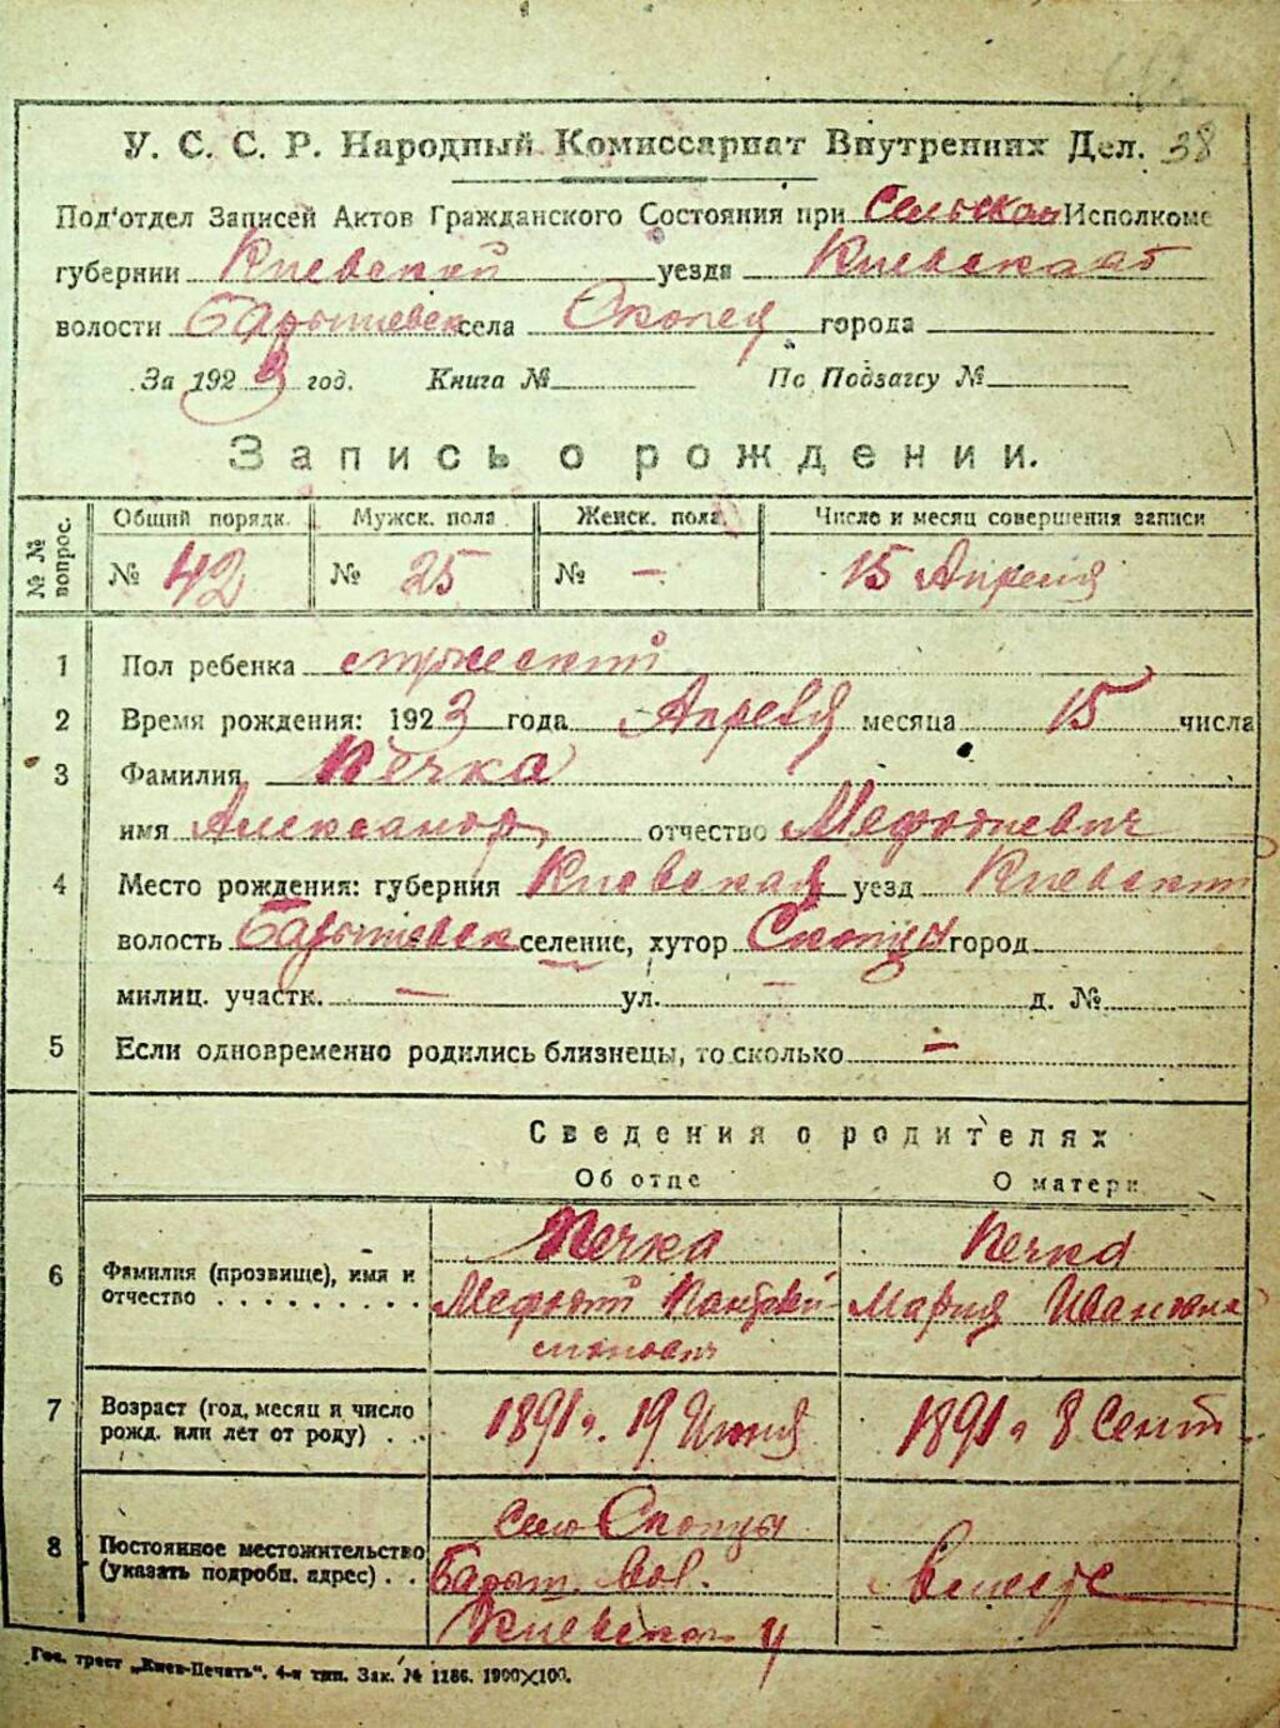 У. С. С. Р. Народный Комиссариат Внутренних Дел. 38
Под'отдел Записей Актов Гражданского Состояния при Сельском Исполкоме
губернии Киевской уезда Киевского
волости Барышевск села Скопец города
За 1923 год. Книга № По Подзагсу №
Запись о рождении.
№ № вопрос. Общий порядк. Мужск. пола Женск. пола Число и месяц совершения записи
№ 42 № 25 № — 15 Апреля
1 Пол ребенка мужеский
2 Время рождения: 1923 года Апреля месяца 15 числа
3 Фамилия Печка
имя Александр отчество Мефодиевич
4 Место рождения: губерния Киевская уезд Киевский
волость Барышевск селение, хутор Скопцы город
милиц. участк. — ул. — д. №
5 Если одновременно родились близнецы, то сколько —
Сведения о родителях
Об отце О матери
6 Фамилия (прозвище), имя и отчество . . . . . . . . .
Печка Печка
Мефодий Мария Ивановна
7 Возраст (год, месяц и число рожд. или лет от роду) . .
1891 г. 19 Июня 1891 г 8 Сент.
8 Постоянное местожительство (указать подробн. адрес) . .
Село Скопцы
Барыш. вол. вместе
Киевского у
Гос. трест „Киев-Печать". 4-я тип. Зак. № 1186. 1900×100.